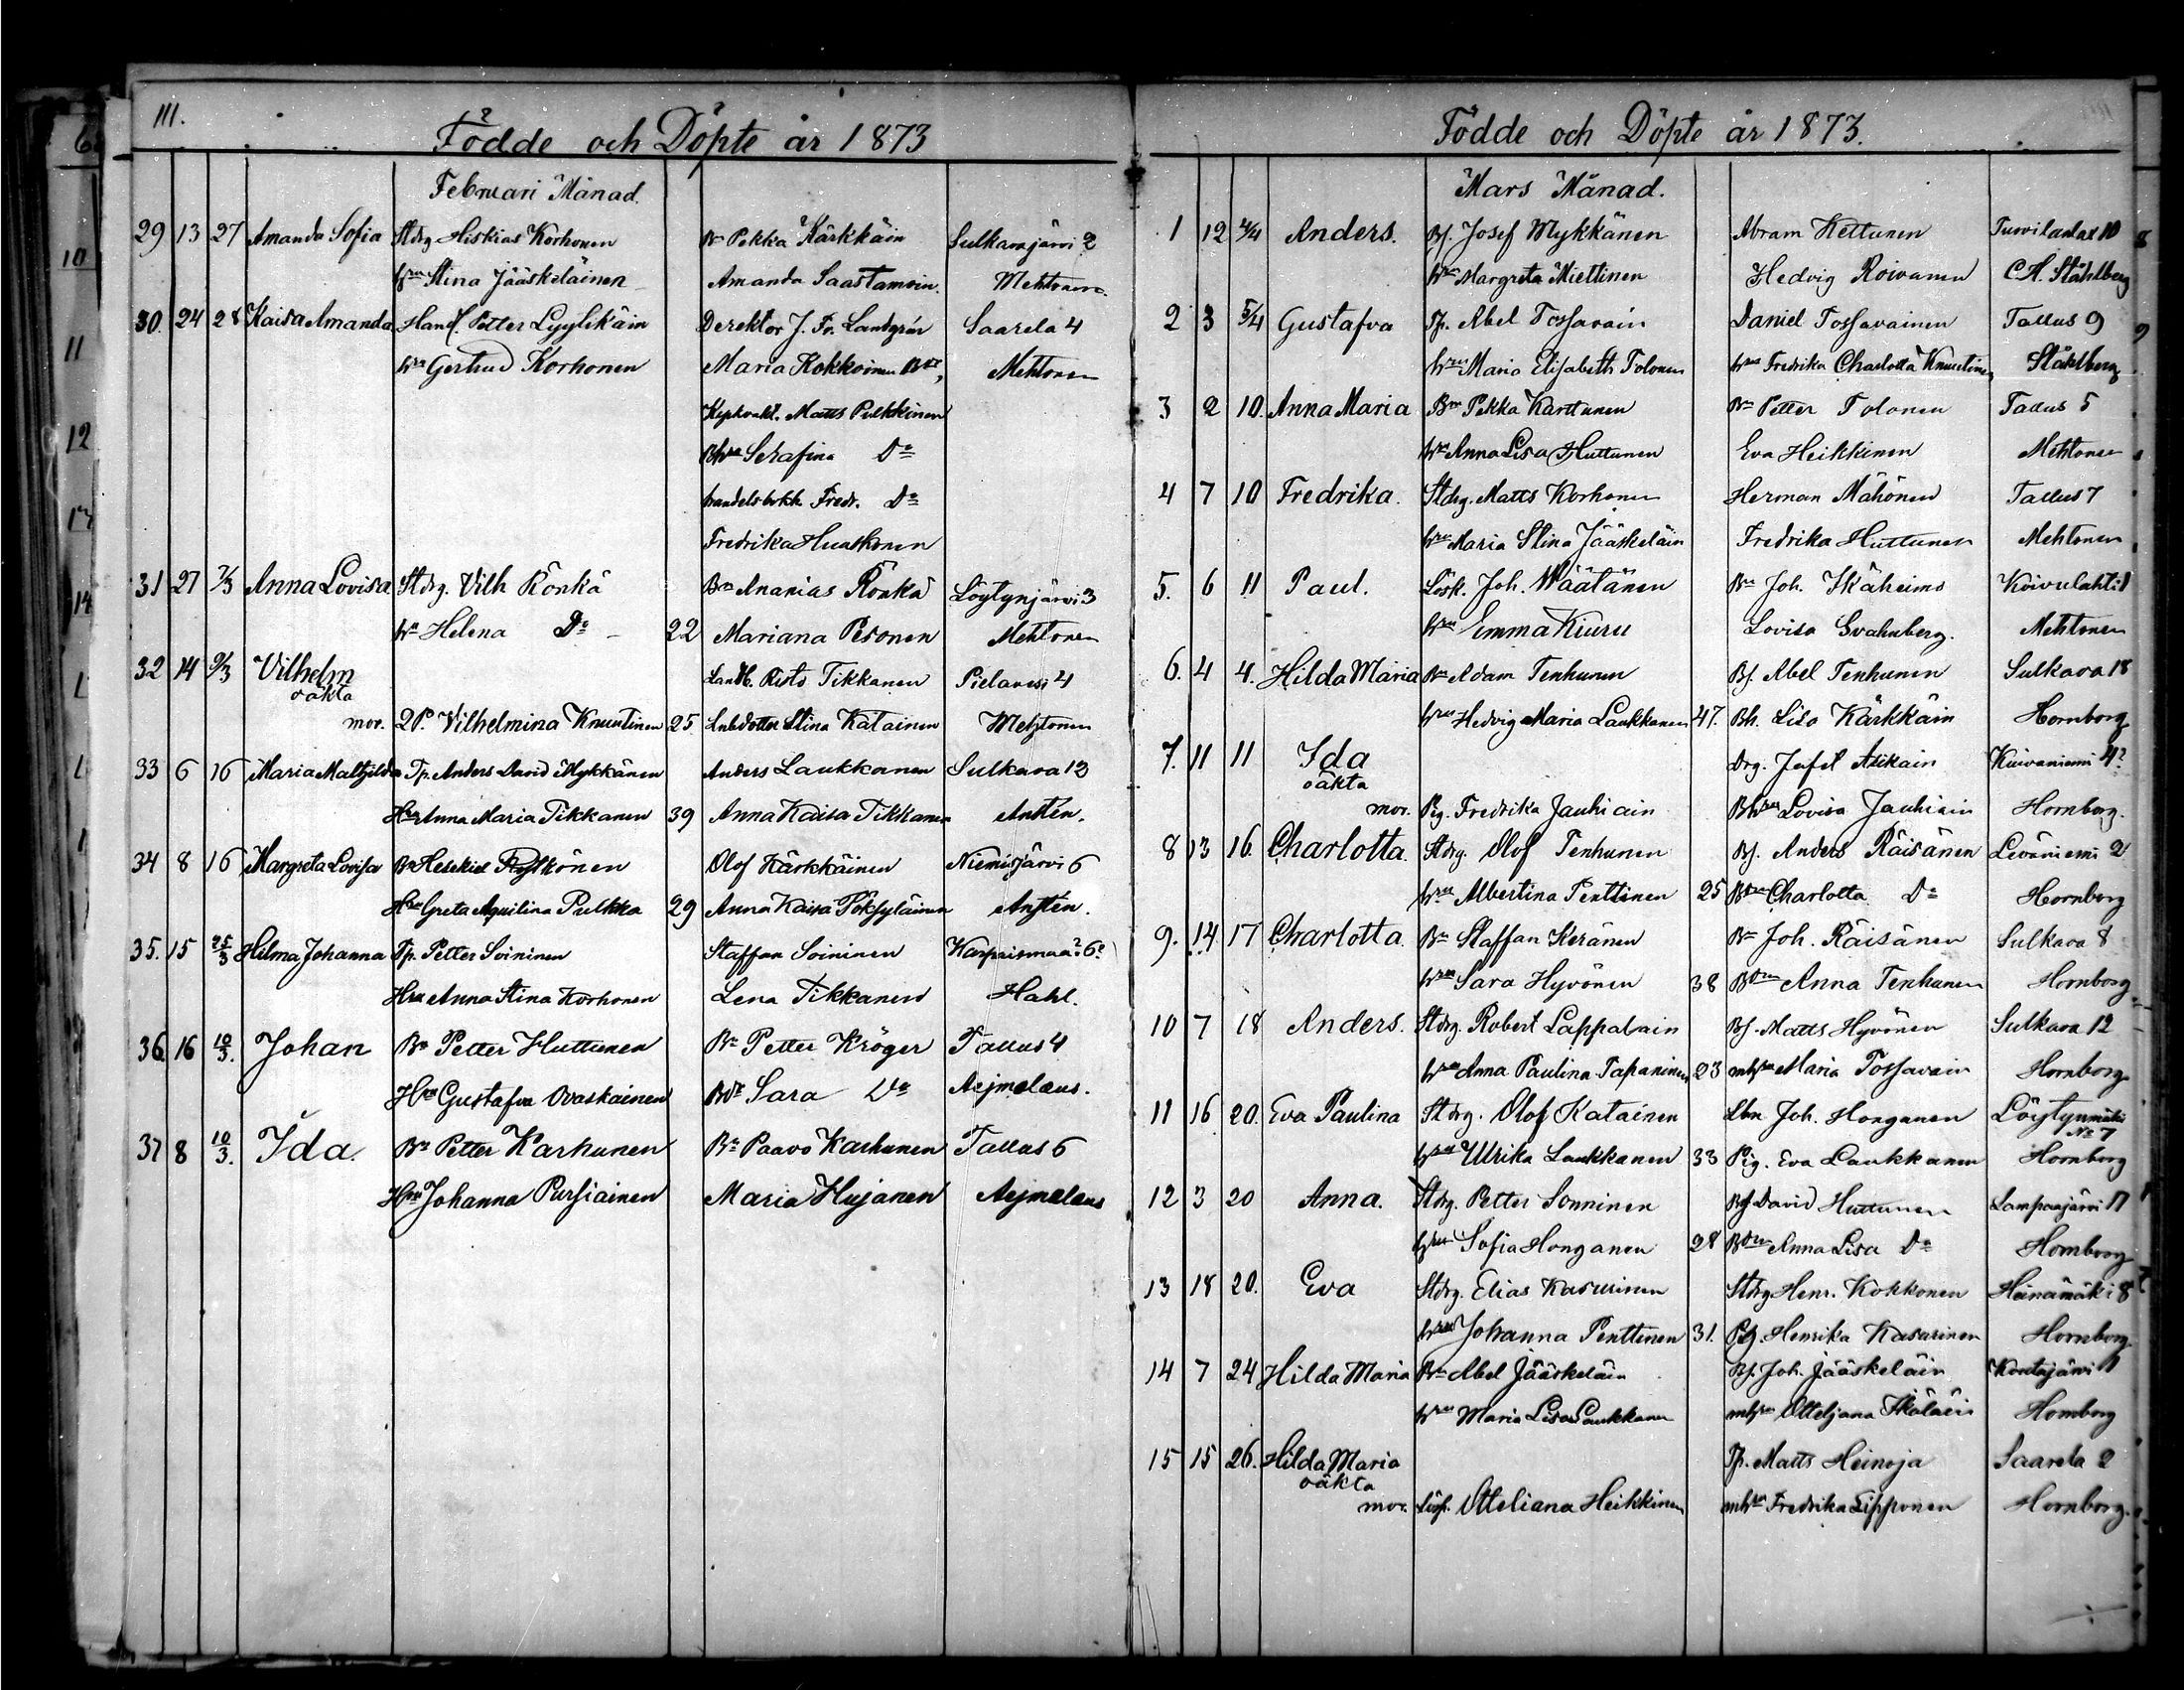 111.
Födde och Döpte år 1873
Februari Månad.
29 13 27 Amanda Sofia Stdrg Hiskias Korhonen Bn Pekka Kärkkäin Sulkavajärvi 2
hru Stina Jääskeläinen Amanda Saastamoin. Mehtonen
30. 24 28 Kaisa Amanda Handl. Petter Lyylikäin Derektor J. Fr. Landgrén Saarela 4
hru Gertrud Korhonen Maria Kokkoinen Mehtonen
Matts Pulkkinen
Bhru Serafina Do
handelsbokh. Fredr. Do
Fredrika Huuskonen
31 27 7/3 Anna Lovisa Stdrg. Vilh Rönkä Bn Ananias Rönkä Löytynjärvi 3
hru Helena Do 22 Mariana Pesonen Mehtonen
32 14 9/3 Vilhelm Risto Tikkanen Pielavesi 4
oäkta
mor. Vilhelmina Knuutinen 25. Stina Katainen Mehtonen
33 6 16 Maria Mathilda Tp. Anders David Mykkänen Anders Laukkanen Sulkava 13
Hru Anna Maria Tikkanen 39 Anna Kaisa Tikkanen Antén.
34 8 16 Margreta Lovisa Bn Hesekiel Olof Kärkkäinen Niemisjärvi 6
Hru Greta Aquilina Pulkka 29 Anna Kaisa Pöksyläinen Antén.
35. 15 25/3 Hilma Johanna Tp. Petter Soininen Staffan Soininen
Hru Anna Stina Korhonen Lena Tikkanen Hahl.
36. 16 10/3. Johan Bn Petter Huttunen Bn Petter Kröger Tallus 4
Hru Gustafva Ovaskainen Sara Do Aejmelæus.
37 8 10/3. Ida. Bn Petter Karhunen Bn Paavo Karhunen Tallus 6
Hru Johanna Pursiainen Maria Hujanen Aejmelæus
Födde och Döpte år 1873.
Mars Månad.
1 12 4/4 Anders. Bs. Josef Mykkänen Abram Kettunen 10
hru Margreta Miettinen Hedvig Roivanen C. A. Ståhlberg
2 3 5/4 Gustafva Tp. Abel Tossavain Daniel Tossavainen Tallus 9
hru Maria Elisabeth Tolonen hru Fredrika Charlotta Knuutinen Ståhlberg
3 2 10. Anna Maria Bn Pekka Karttunen Bn Petter Tolonen Tallus 5
hru Anna Lisa Huttunen Eva Heikkinen Mehtonen
4 7 10 Fredrika. Stdrg. Matts Korhonen Herman Mähönen Tallus 7
hru Maria Stina Jääskeläin Fredrika Huttunen Mehtonen
5. 6 11 Paul. Lösk. Joh. Väätänen Bn Joh. Ikäheimo Koivulahti 1
hru Emma Kiuru Lovisa Svahnberg. Mehtonen
6. 4 4. Hilda Maria Bn Adam Tenhunen Bs. Abel Tenhunen Sulkava 18
hru Hedvig Maria Laukkanen 47. Bh. Lisa Kärkkäin Hornborg
7. 11 11 Ida Drg. Asikain
oäkta
mor. Pig. Fredrika Jauhiain Bhru Lovisa Jauhiain Hornborg.
8 13 16. Charlotta. Stdrg. Olof Tenhunen Bs. Anders Räisänen Leväniemi 2
hru Albertina Penttinen 25 Charlotta Do Hornborg
9. 14 17 Charlotta. Bn Staffan Keränen Bn Joh. Räisänen Sulkava 8
hru Sara Hyvönen 38 Anna Tenhunen Hornborg
10 7 18 Anders. Stdrg. Robert Lappalain Bs. Matts Hyvönen Sulkava 12
hru Anna Paulina Tapaninen 23 mhru Maria Tossavain Hornborg
11 16 20. Eva Paulina Stdrg. Olof Katainen Lbn Joh. Honganen Löytynmäki No 7
hru Ulrika Laukkanen 33 Pig. Eva Laukkanen Hornborg
12 3 20 Anna. Stdrg. Petter Sonninen Bs David Huttunen Lampaajärvi 17
hru Sofia Honganen 28 Anna Lisa Do Hornborg
13 18 20. Eva Stdrg. Elias Kasurinen Stdrg Henr. Kokkonen Heinämäki 8
hru Johanna Penttinen 31. Pig. Henrika Kasurinen Hornborg
14 7 24 Hilda Maria Bn Abel Jääskeläin Bs. Joh. Jääskeläin
hru Maria Lisa Laukkanen mhru Otteljana Hornborg
15 15 26. Hilda Maria Tp. Matts Heinoja Saarela 2
oäkta
mor. Otteliana Heikkinen mhru Fredrika Lipponen Hornborg.